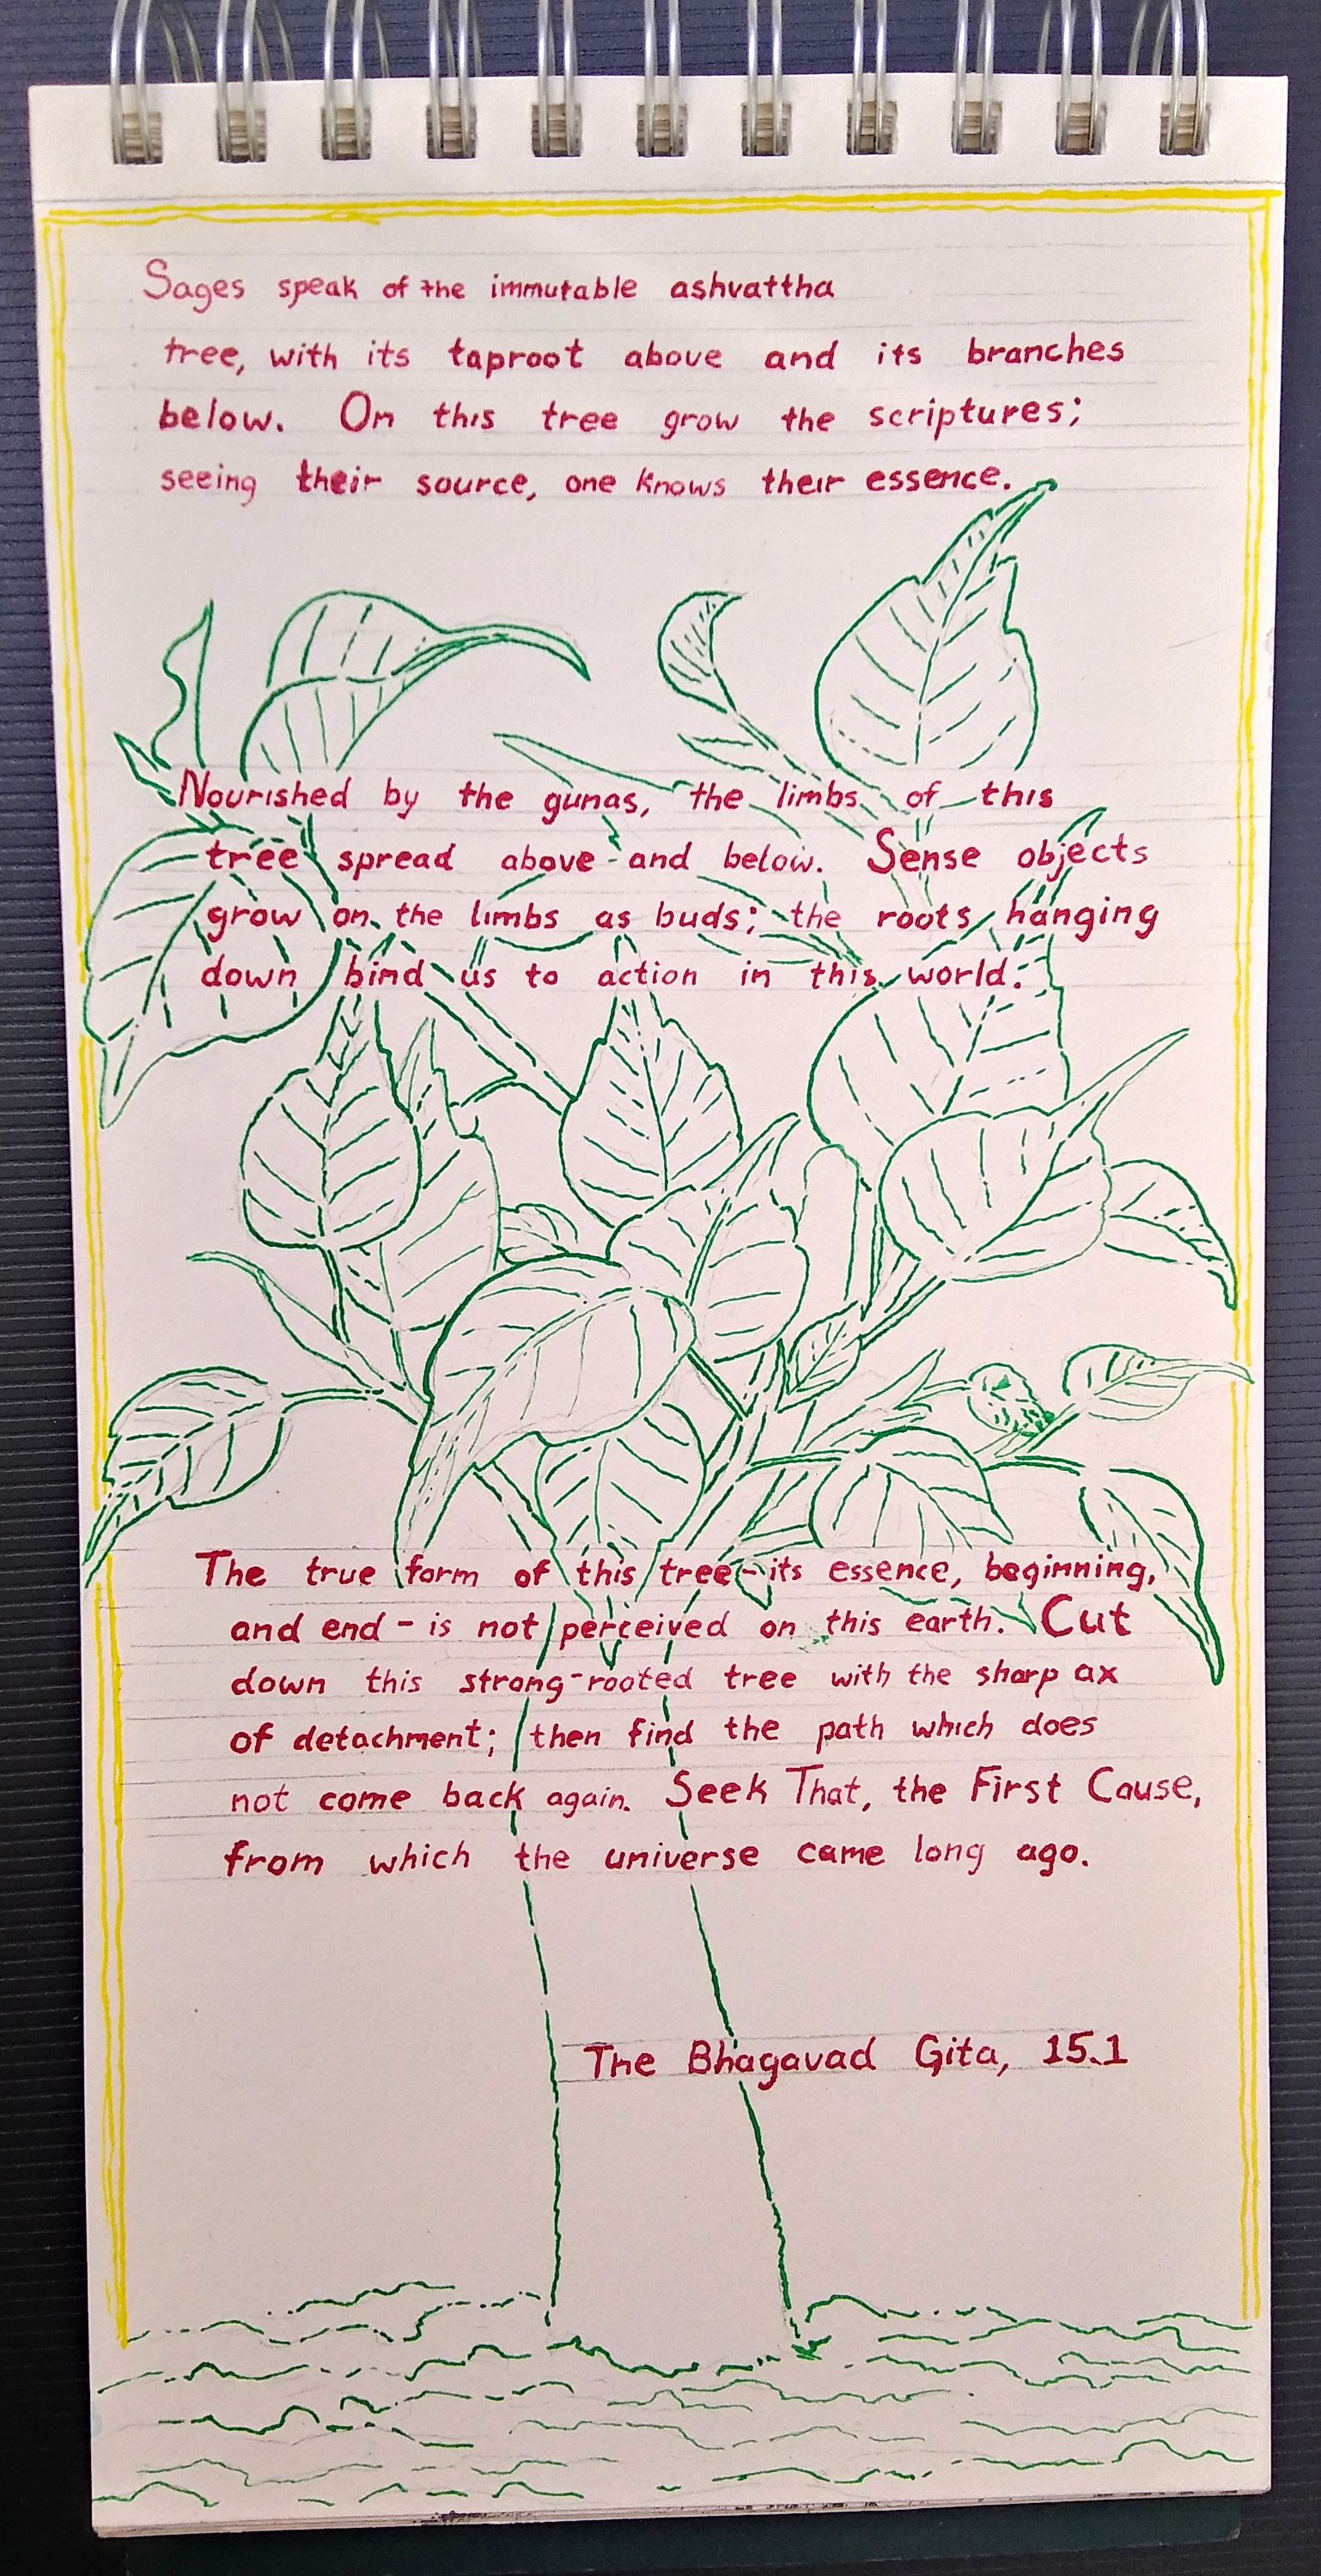 Sages speak of the immutable ashvattha
tree, with its taproot above and its branches
below. On this tree grow the scriptures;
seeing their source, one knows their essence.
Nourished by the gunas, the limbs of this
tree spread above and below. Sense objects
grow on the limbs as buds; the roots hanging
down bind us to action in this world.
The true form of this tree - its essence, beginning,
and end - is not perceived on this earth. Cut
down this strong-rooted tree with the sharp ax
of detachment; then find the path which does
not come back again. Seek That, the First Cause,
from which the universe came long ago.
The Bhagavad Gita, 15.1